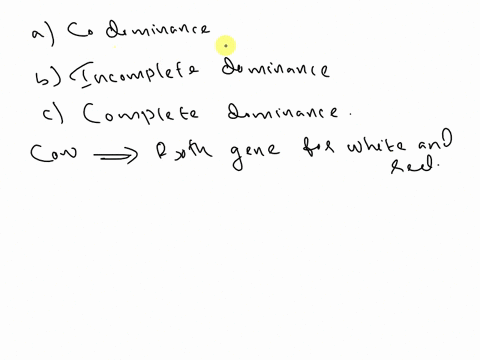 a) Co dominance
b) Incomplete dominance
c) Complete dominance.
Cow ⟹ Both gene for white and
red.